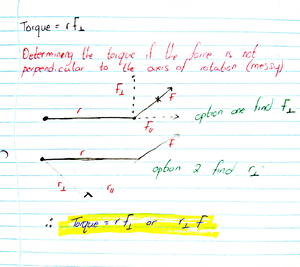 Torque = r F⊥
Determining the torque if the force is not
perpendicular to the axis of rotation (messy)
F⊥ F
r
F∥ option one find F⊥
r F
option 2 find r⊥
r⊥ r∥
∴ Torque = r f⊥ or r⊥ f